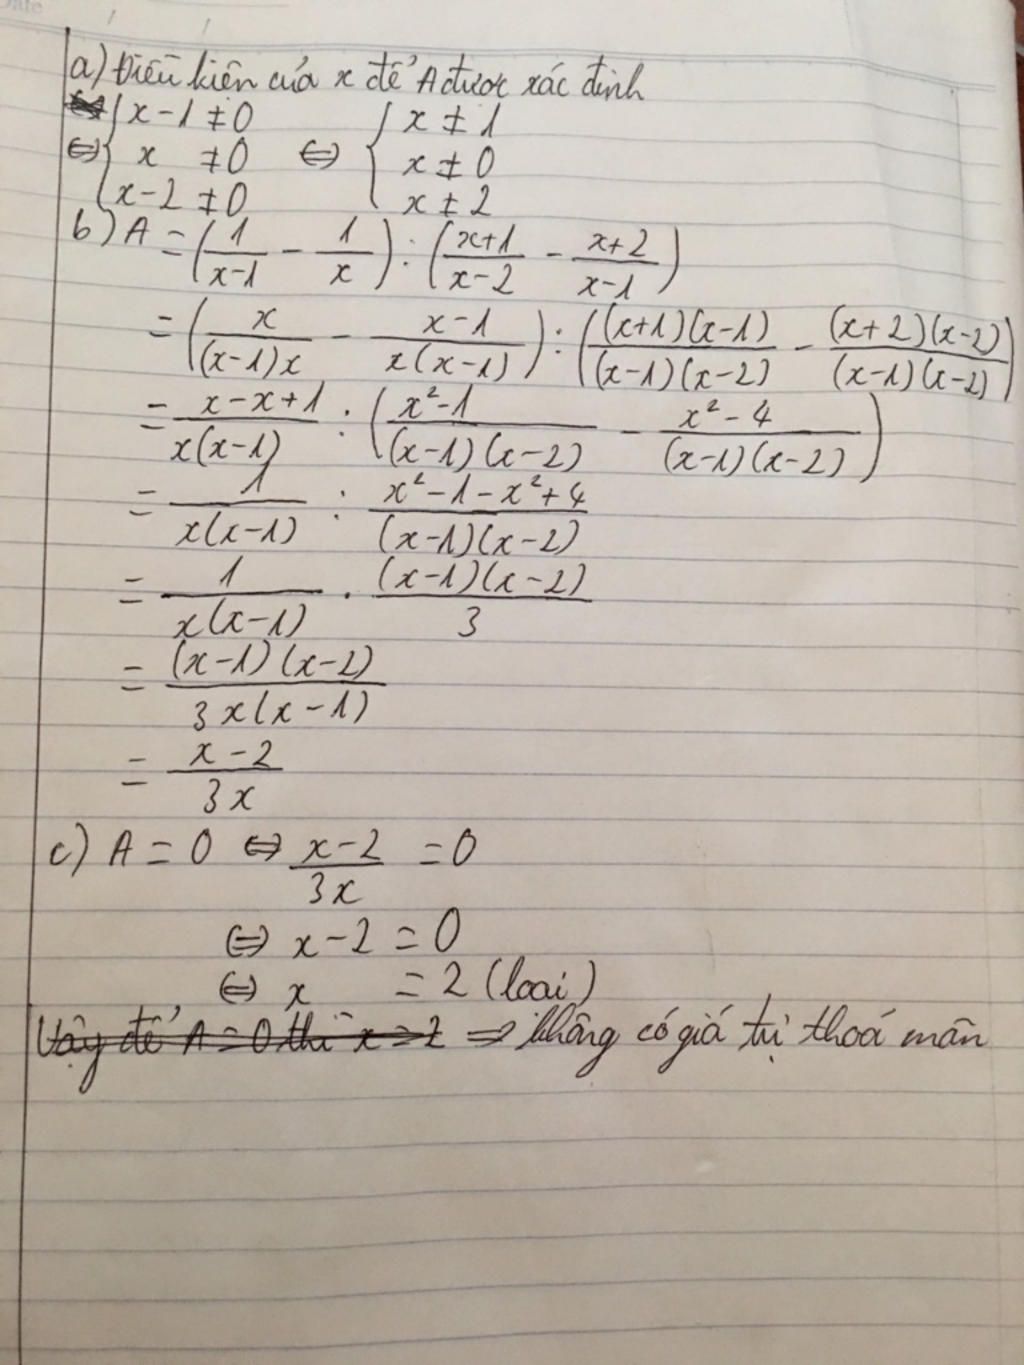 Date / /
a) Điều kiện của x để A được xác định
⇔ { x - 1 ≠ 0 ; x ≠ 0 ; x - 2 ≠ 0 ⇔ { x ≠ 1 ; x ≠ 0 ; x ≠ 2
b) A = (1/(x-1) - 1/x) : ((x+1)/(x-2) - (x+2)/(x-1))
= (x/((x-1)x) - (x-1)/(x(x-1))) : (((x+1)(x-1))/((x-1)(x-2)) - ((x+2)(x-2))/((x-1)(x-2)))
= (x-x+1)/(x(x-1)) : ((x²-1)/((x-1)(x-2)) - (x²-4)/((x-1)(x-2)))
= 1/(x(x-1)) : (x²-1-x²+4)/((x-1)(x-2))
= 1/(x(x-1)) . ((x-1)(x-2))/3
= ((x-1)(x-2))/(3x(x-1))
= (x-2)/(3x)
c) A = 0 ⇔ (x-2)/(3x) = 0
⇔ x - 2 = 0
⇔ x = 2 (loại)
Vậy để A = 0 thì x = 2 ⇒ không có giá trị thoả mãn